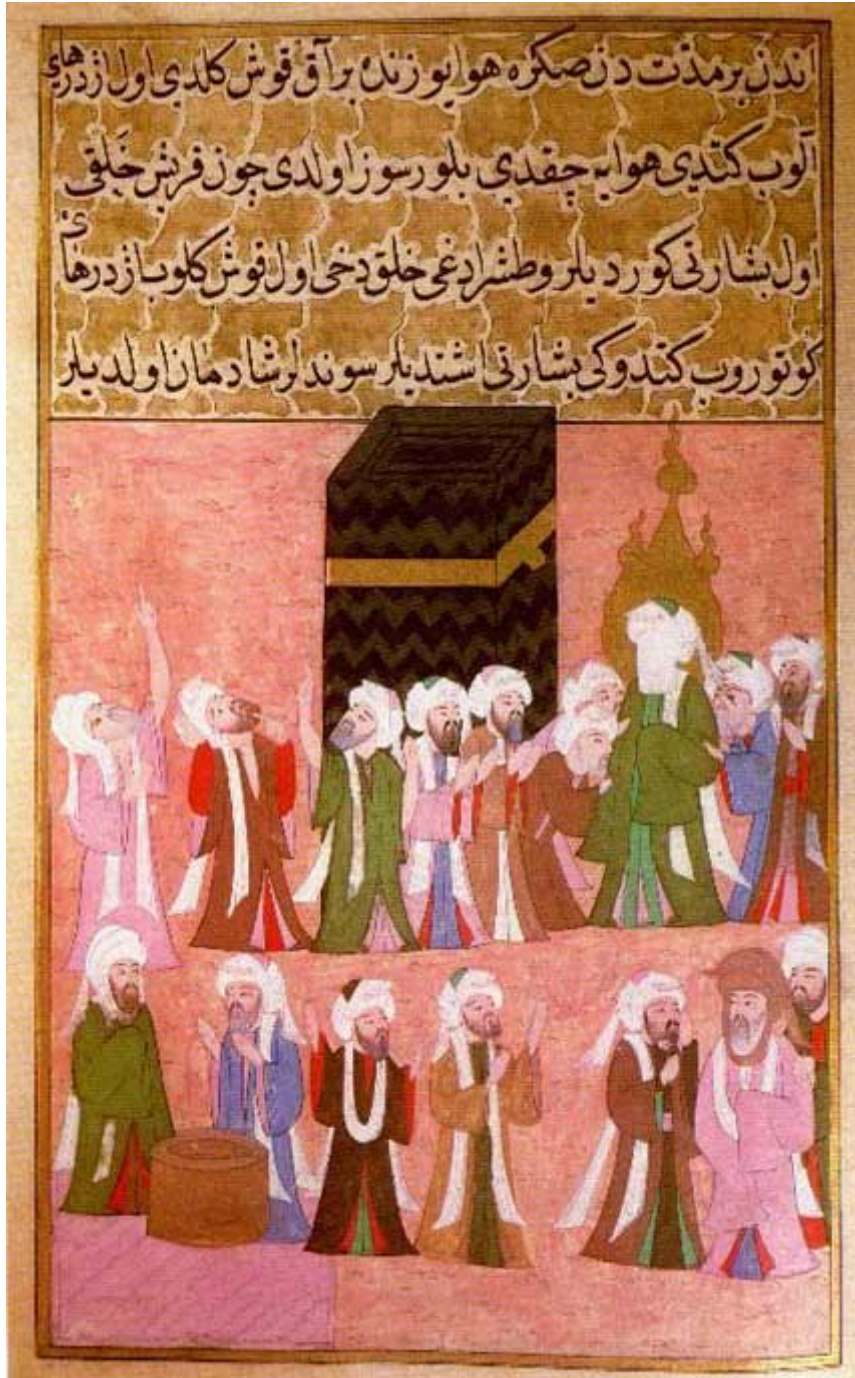 اندن بر مدّت دن صكره هوا يوزنده بر آق قوش كلدي اول ازدرهاي
آلوب كتدي هوايه چقدي بلورسوز اولدي چون قريش خَلقي
اول بشارتي كورديلر و طشرادغي خلق دخي اول قوش كلوب ازدرهاي
كوتوروب كتدوكي بشارتي اشتديلر سوندلر شادمان اولديلر